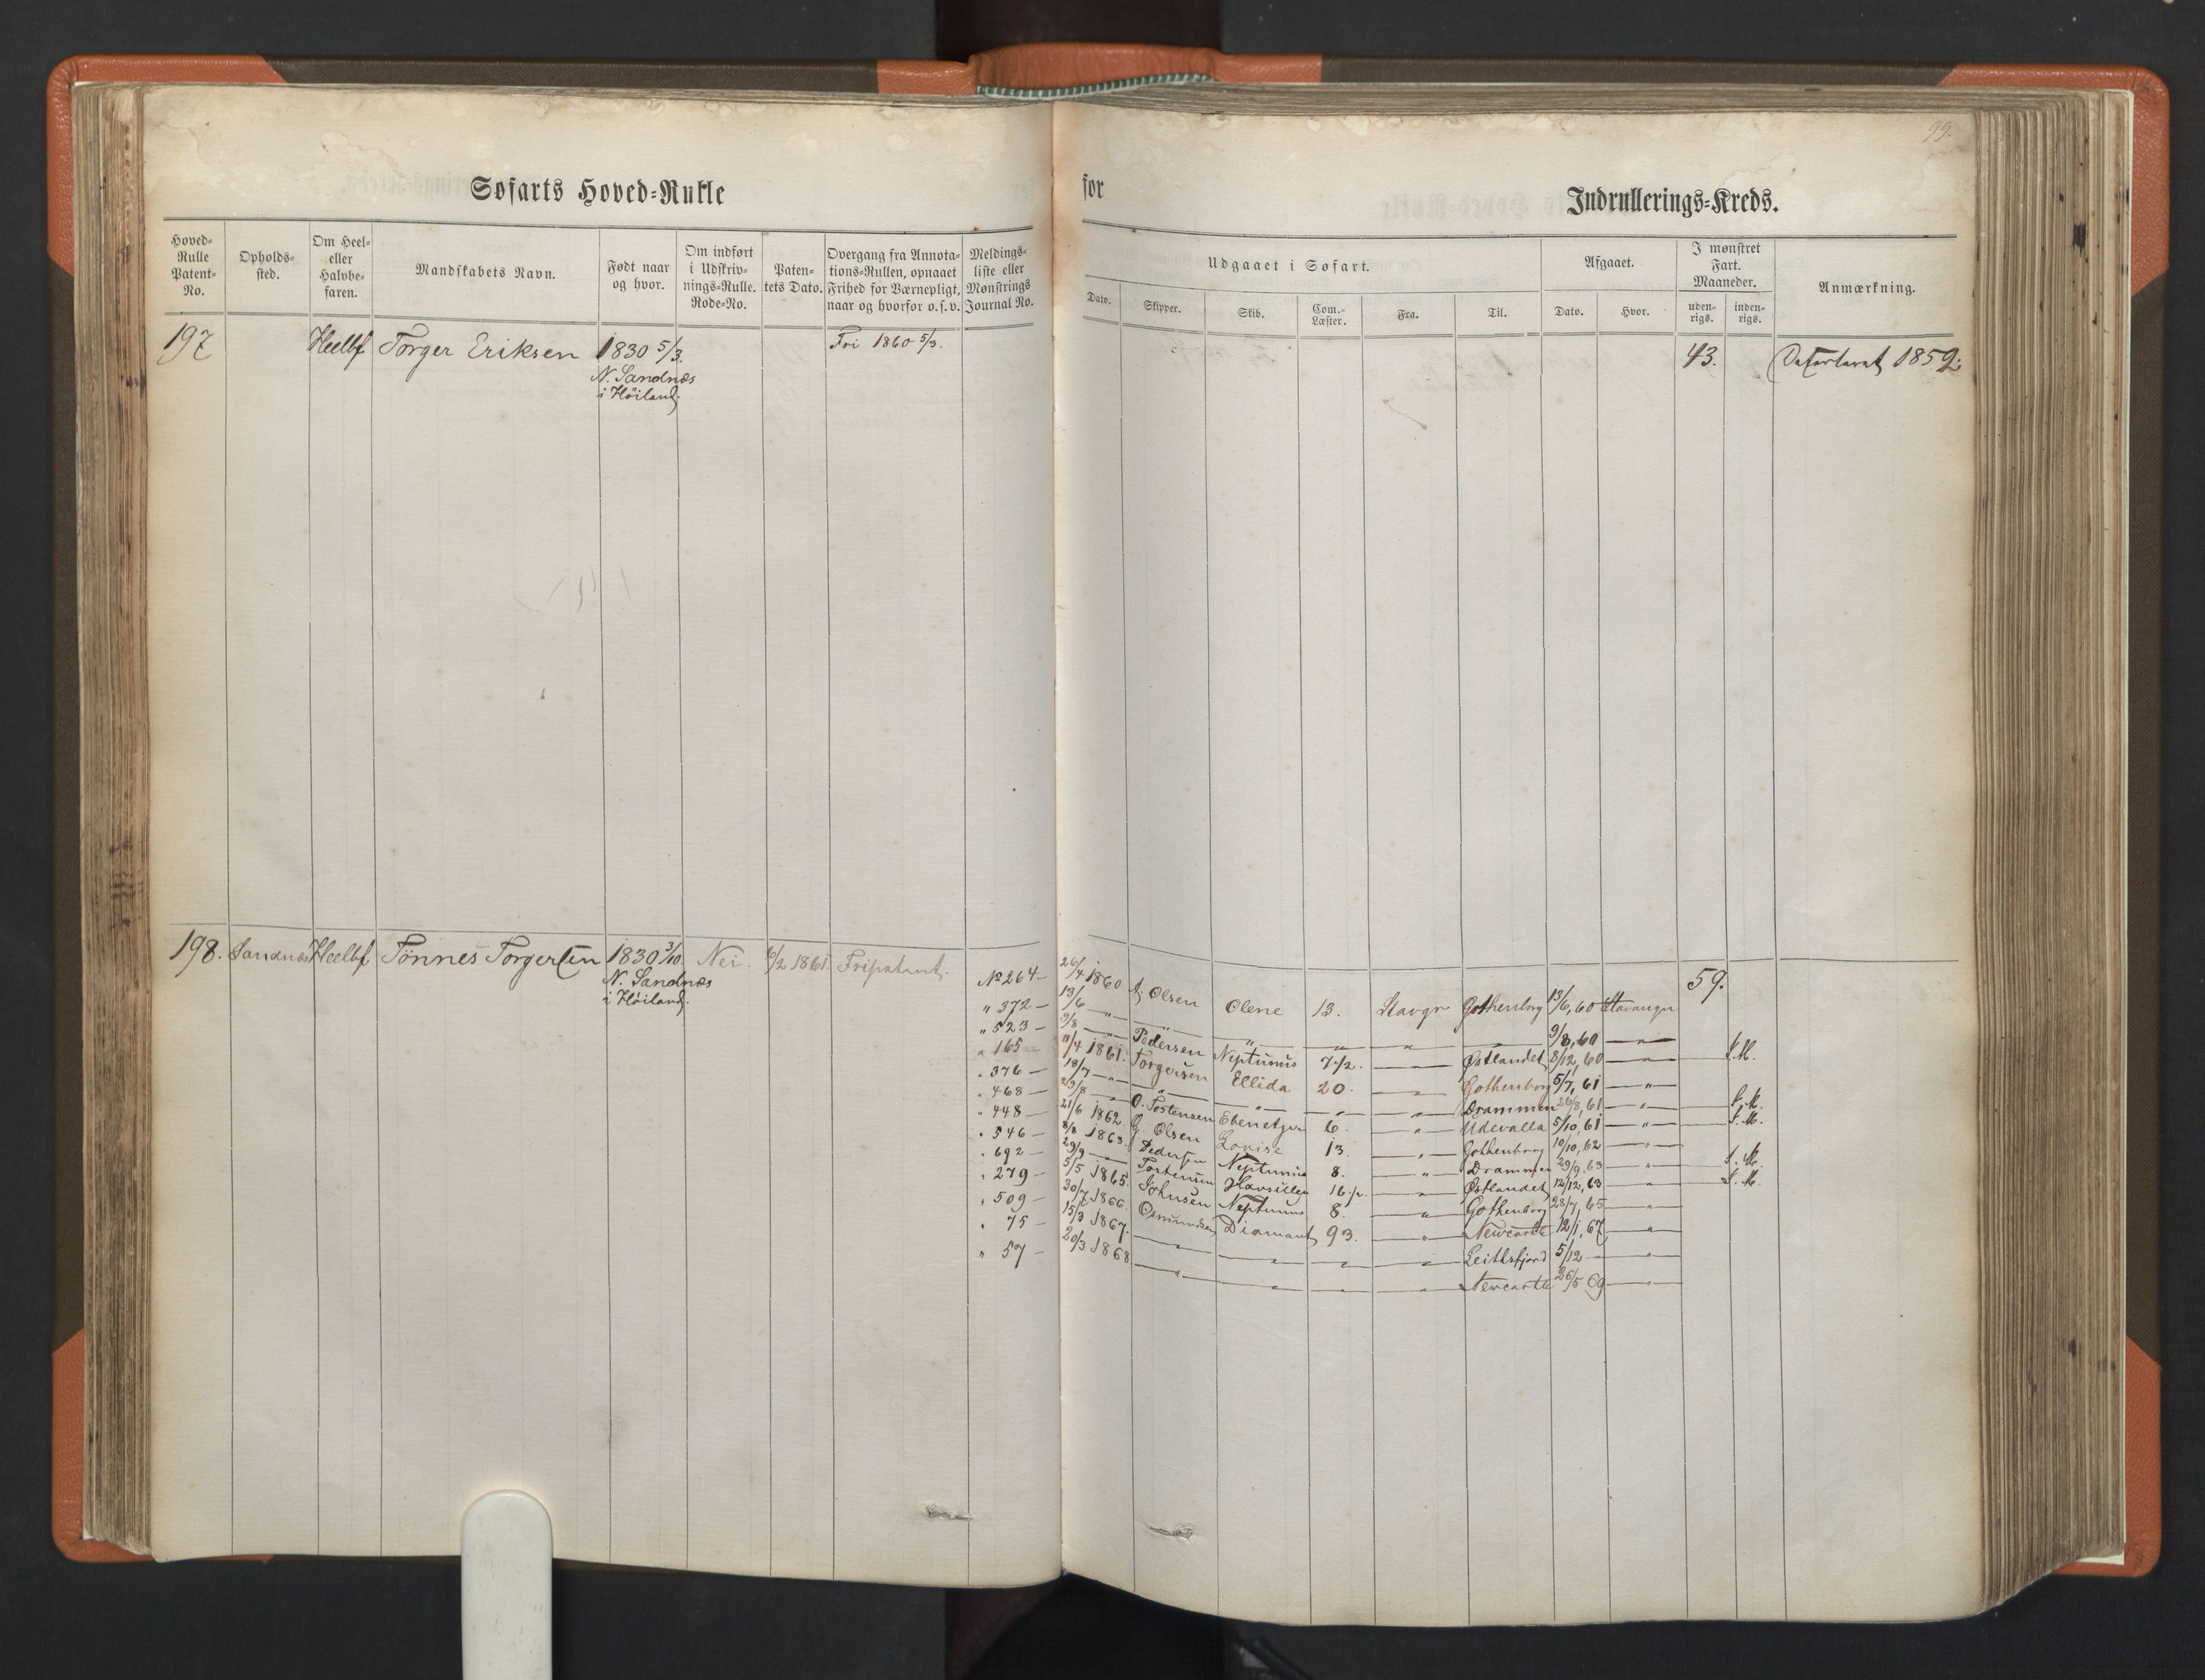 99.
Søfarts Hoved=Rulle
for
Indrullerings=Kreds.
Hoved=
Rulle
Patent=
No.
Opholds=
sted.
Om Heel=
eller
Halvbe=
faren.
Mandskabets Navn.
Født naar
og hvor.
Om indført
i Udskriv=
nings=Rulle.
Rode=No.
Paten=
tets Dato.
Overgang fra Annota=
tions=Rullen, opnaaet
Frihed for Værnepligt,
naar og hvorfor o.s.v.
Meldings=
liste eller
Mønstrings
Journal No.
Udgaaet i Søfart.
Dato.
Skipper.
Skib.
Com.=
Læster.
Fra.
Til.
Afgaaet.
Dato.
Hvor.
I mønstret
Fart.
Maaneder.
uden=
rigs.
inden=
rigs.
Anmærkning.
197 Heelbf Torger Eriksen 1830 5/3. Fri 1860 5/3. 43. 1859.
N. Sandnæs
i Höiland.
198. Sandnæs Heelbf Tönnes Torgersen 1830 3/10. Nei. 6/2 1861. Fripatent. 59.
N. Sandnæs
i Höiland.
No 264 — 26/4 1860 Olsen Olene 13. Stavgr Gothenborg 13/6, 60 Stavanger
" 372 — 13/6 — " — " — " — " — " — 9/8, 60 — " —
" 523 — 9/8 — " — Pedersen Neptunus 7 1/2. — " — Østlandet 8/12, 60 — " — S.M.
" 165 — 11/4 1861. Torgersen Ellida 20. — " — Gothenborg 5/7, 61 — " —
" 376 — 18/7 — " — " — " — " — " — Drammen 26/8, 61 — " — S.M.
" 468 — 29/8 — " — O. Tostensen Ebenetzer 6. — " — Udevalla 5/10, 61 — " — S.M.
" 448 — 21/6 1862. G. Olsen Lovise 13. — " — Gothenborg 10/10, 62 — " —
" 546 — 8/8 1863. Pedersen Neptunus 8. — " — Drammen 29/9, 63 — " — S.M.
" 692 — 29/9 — " — Tostensen Havsillen 16 1/2. — " — Østlandet 12/12, 63 — " — S.M.
" 279 — 5/5 1865. Johnsen Neptunus 8. — " — Gothenborg 28/7, 65 — " —
" 509 — 30/7 1866. Osmundsen Diamant 93. — " — Newcastle 12/1, 67 — " —
" 75 — 15/3 1867. — " — " — " — " — Leithsfjord 5/12 — " —
" 57 — 20/3 1868 — " — " — " — " — Newcastle 26/5 69 — " —